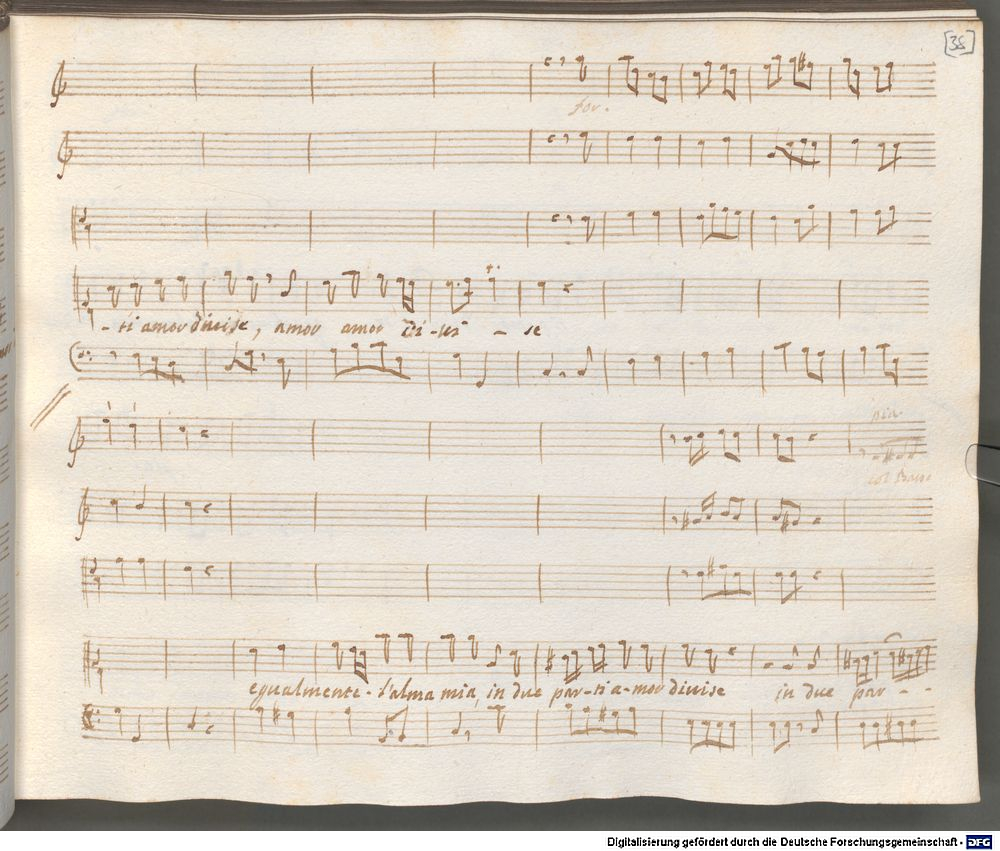 [38]
for.
- ti amor divise, amor amor di - vi - se
pia.
col Basso
egualmente - l'alma mia, in due par - ti a - mor divise in due par - -
Digitalisierung gefördert durch die Deutsche Forschungsgemeinschaft - DFG